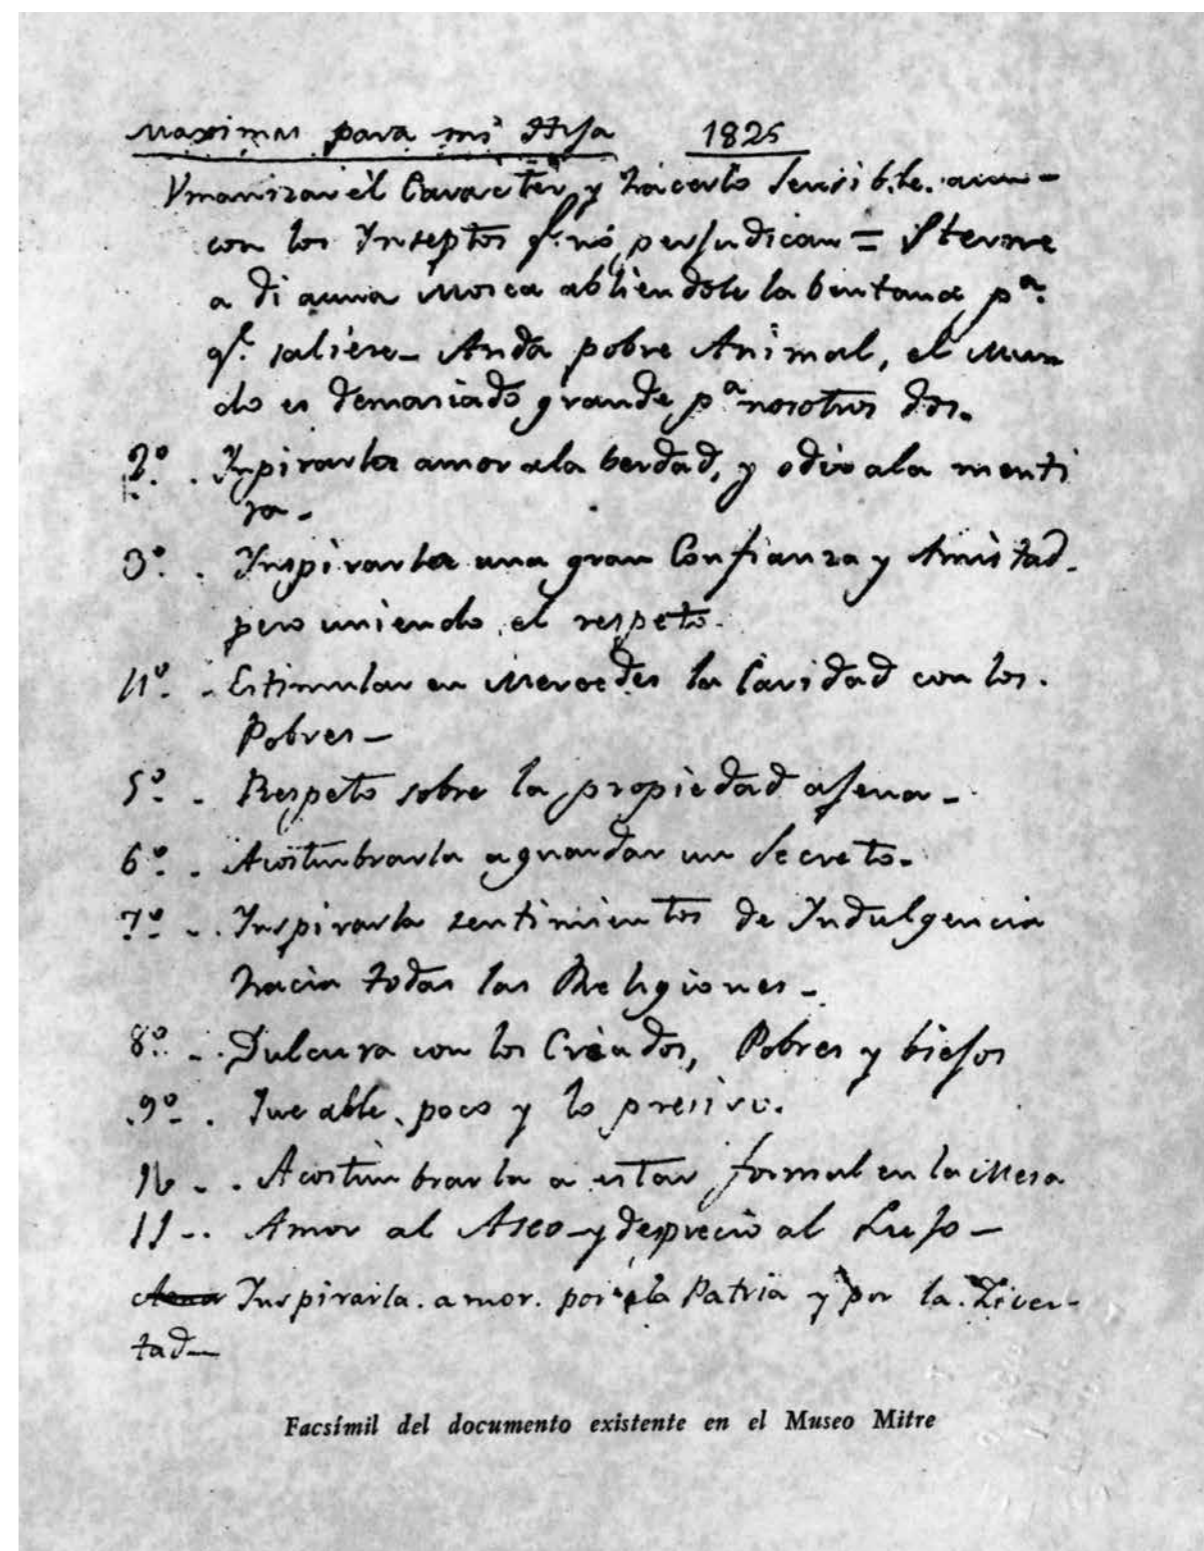 Maximas para mi Hija 1825
Umanizar él Caracter y hacerlo Sensible. aun-
con los Inseptos q.e no perjudican = Sterne
a di auna Mosca abliendole la bentana p.a
q.e saliese_ Anda pobre Animal, el Mun
do es demasiado grande p.a nosotros dos.
2º. . Inpirarla amor ala berdad, y odio ala menti
ra-
3º. . Inspirarla una gran Confianza y Amistad.
pero uniendo el respeto.
4º. . Estimular en Mercedes la Caridad con los.
Pobres_
5º. . Respeto sobre la propiedad ajena_
6º. . Acostunbrarla a guardar un Secreto.
7º . . Inspirarla sentimientos de Indulgencia
hacia todas las Religiones_
8º. _ . Dulcura con los Criados, Pobres y biejos
9º . Que able poco y lo presiso.
10 . . Acostunbrarla a estar formal en la Mesa
11 - . Amor al Aseo y desprecio al Lujo_
Inspirarla. amor. por la Patria y por la. Liver-
tad_
Facsímil del documento existente en el Museo Mitre